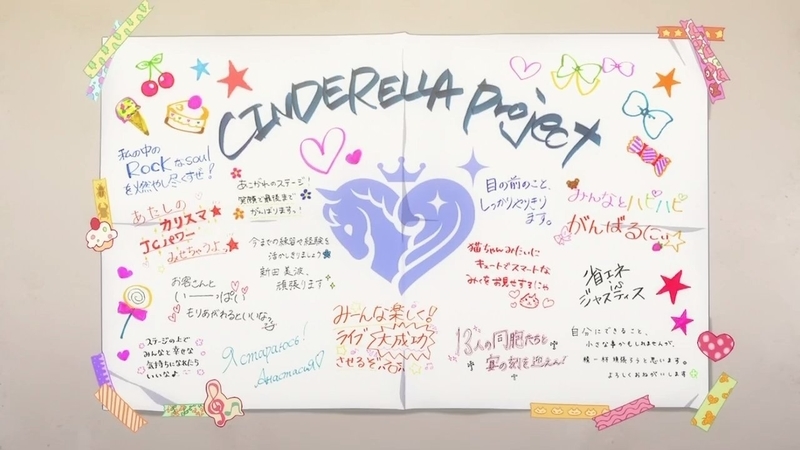 CINDERELLA project
私の中の
Rockなsoul
を燃やし尽くすぜ!
あこがれのステージ!
笑顔で最後まで
がんばります、!
目の前のこと、
しっかりやりきり
ます。
みんなとハピハピ
がんばるにぃ
あたしの
カリスマ
JCパワー
みせちゃうよ
今までの練習や経験を
活かしきりましょう
新田美波、
頑張ります
猫ちゃんみたいに
キュートでスマートな
みくをお見せするにゃ
省エネ
心
ジャスティス
お客さんと
いーーっぱい
もりあがれるといいなっ
みーんな楽しく!
ライブ大成功
させるぞ
13人の同胞たちと
宴の刻を迎えん!
自分にできること、
小さな事かもしれませんが、
精一杯頑張ろうと思います。
よろしくおねがいします
ステージの上で
みんなと幸せな
気持ちになれたら
いいなぁ
Я стараюсь!
Анастасия